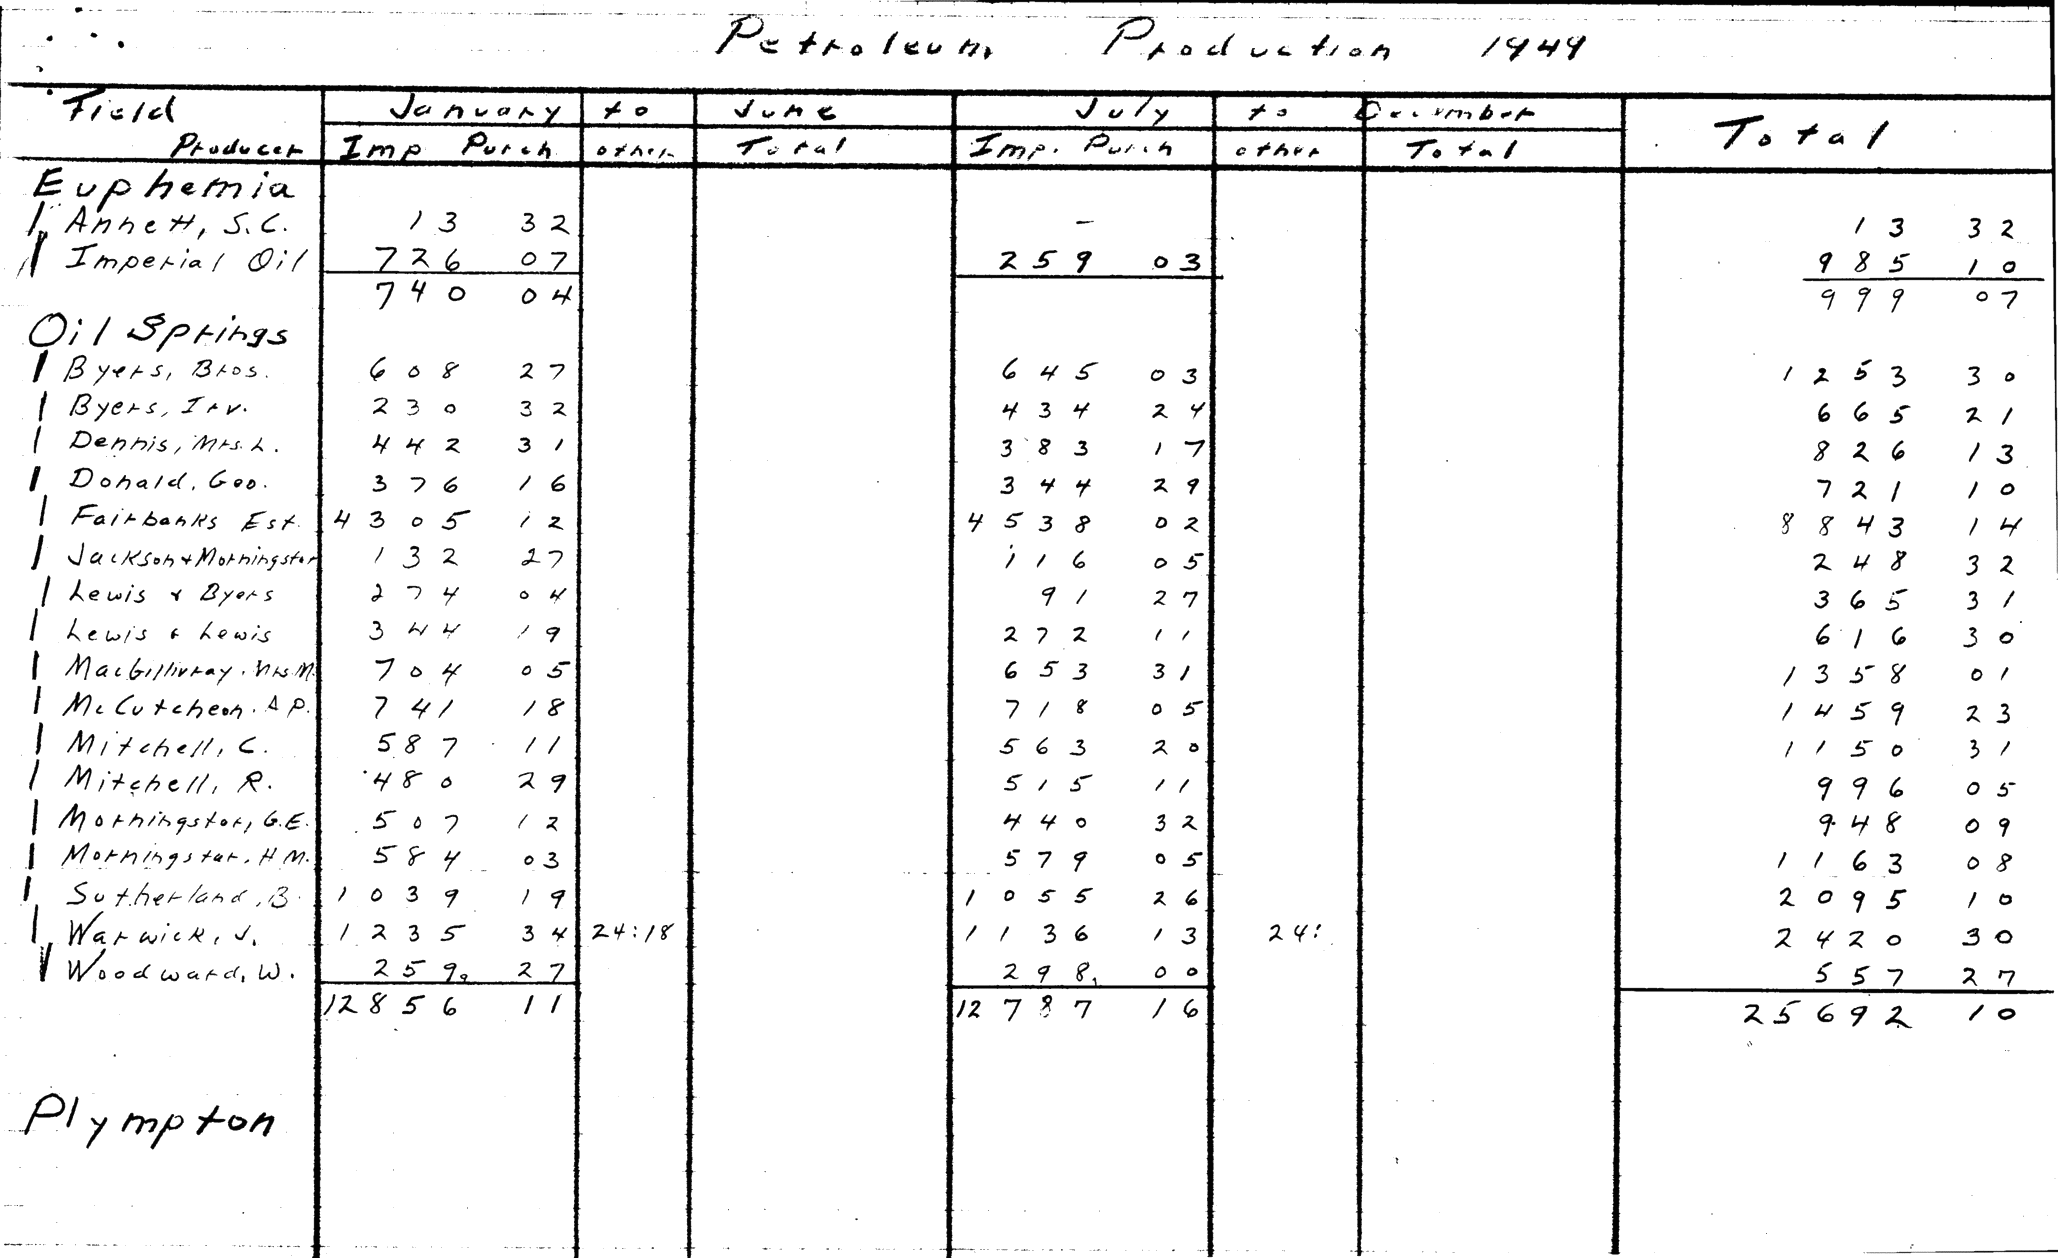 Petroleum Production 1949
Field January to June July to December Total
Producer Imp Purch other Total Imp. Purch other Total
Euphemia
Annett, S.C. 13 32 - 13 32
Imperial Oil 726 07 259 03 985 10
740 04 999 07
Oil Springs
Byers, Bros. 608 27 645 03 1253 30
Byers, Irv. 230 32 434 24 665 21
Dennis, Mrs. L. 442 31 383 17 826 13
Donald, Geo. 376 16 344 29 721 10
Fairbanks Est. 4305 12 4538 02 8843 14
Jackson + Morningstar 132 27 116 05 248 32
Lewis & Byers 274 04 91 27 365 31
Lewis & Lewis 344 19 272 11 616 30
MacGillivray, Mrs M. 704 05 653 31 1358 01
McCutcheon. A P. 741 18 718 05 1459 23
Mitchell, C. 587 11 563 20 1150 31
Mitchell, R. 480 29 515 11 996 05
Morningstar, G.E. 507 12 440 32 948 09
Morningstar. H M. 584 03 579 05 1163 08
Sutherland, B. 1039 19 1055 26 2095 10
Warwick, J. 1235 34 24:18 1136 13 24: 2420 30
Woodward, W. 259 27 298 00 557 27
12856 11 12787 16 25692 10
Plympton